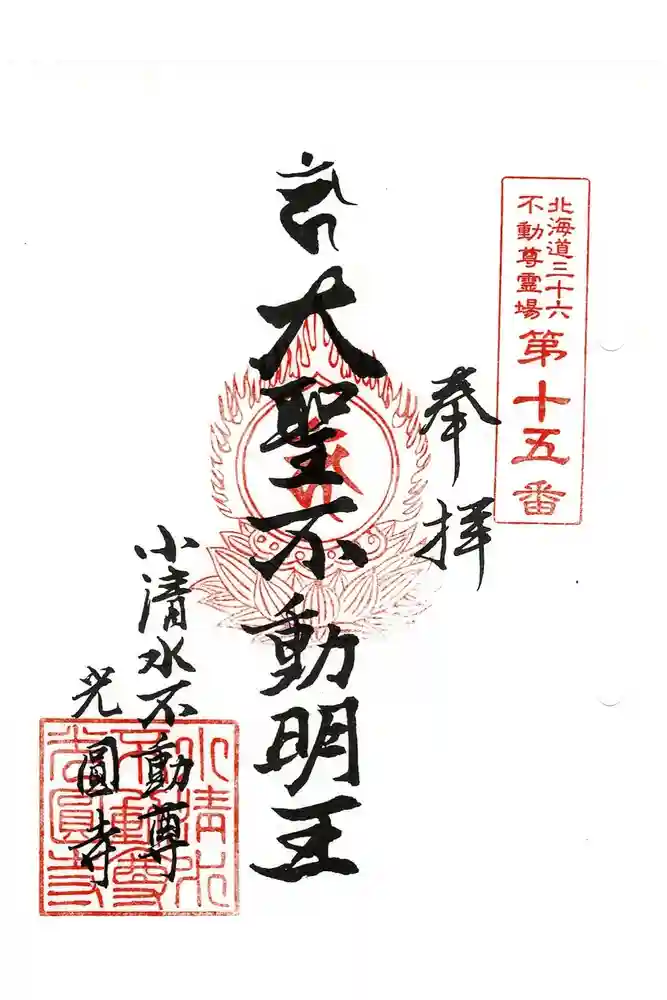 北海道三十六
不動尊霊場
第十五番
奉拝
大聖不動明王
小清水不動尊
光圓寺
小清水
不動尊
光圓寺